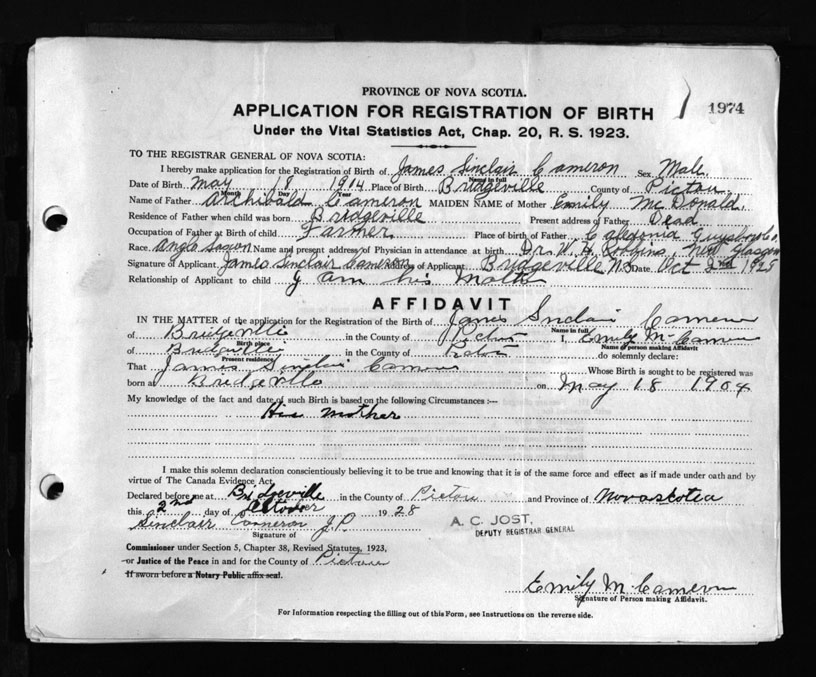 PROVINCE OF NOVA SCOTIA.
1974
APPLICATION FOR REGISTRATION OF BIRTH
Under the Vital Statistics Act, Chap. 20, R. S. 1923.
TO THE REGISTRAR GENERAL OF NOVA SCOTIA:
I hereby make application for the Registration of Birth of James Sinclair Cameron Sex Male
Name in full
Date of Birth May 18 1914 Place of Birth Bridgeville County of Pictou
Month Day Year
Name of Father Archibald Cameron MAIDEN NAME of Mother Emily McDonald.
Residence of Father when child was born Bridgeville Present address of Father Dead
Occupation of Father at Birth of child Farmer Place of birth of Father Caledonia Guysboro Co.
Race Anglo Saxon Name and present address of Physician in attendance at birth Dr. W. H. New Glasgow
Signature of Applicant James Sinclair Cameron Address of Applicant Bridgeville N.S. Date Oct 2nd 1928
Relationship of Applicant to child I am his Mother
AFFIDAVIT
IN THE MATTER of the application for the Registration of the Birth of James Sinclair Cameron
Name in full
of Bridgeville in the County of Pictou I, Emily M. Cameron
Birth place Name of person making Affidavit
of Bridgeville in the County of Pictou do solemnly declare:
Present residence
That James Sinclair Cameron Whose Birth is sought to be registered was
born at Bridgeville on May 18 1904
My knowledge of the fact and date of such Birth is based on the following Circumstances :—
His mother
I make this solemn declaration conscientiously believing it to be true and knowing that it is of the same force and effect as if made under oath and by
virtue of The Canada Evidence Act.
Declared before me at Bridgeville in the County of Pictou and Province of Nova Scotia
this 2nd day of October 1928
Sinclair Cameron J.P.
Signature of
A. C. JOST,
DEPUTY REGISTRAR GENERAL
Commissioner under Section 5, Chapter 38, Revised Statutes, 1923,
or Justice of the Peace in and for the County of Pictou
If sworn before a Notary Public affix seal.
Emily M. Cameron
Signature of Person making Affidavit.
For Information respecting the filling out of this Form, see Instructions on the reverse side.